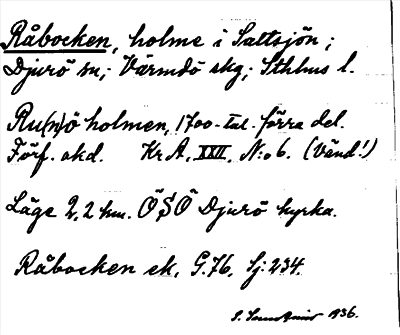 Råbocken, holme i Saltsjön;
Djurö sn; Värmdö skg; Sthlms l.
Ru(n)ö holmen, 1700-tal. förra del.
Förf. okd. Kr A, XXII, N:o 6. (Vänd!)
Läge 2,2 km. ÖSÖ Djurö kyrka.
Råbocken ek. G.76, Sj: 234.
1936.